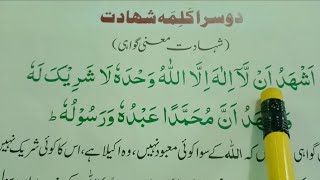 دوسرا کلمہ شہادت
(شہادت معنی گواہی)
اَشْهَدُ اَنْ لَّآ اِلٰهَ اِلَّا اللّٰهُ وَحْدَهٗ لَا شَرِيْكَ لَهٗ
اَنَّ مُحَمَّدًا عَبْدُهٗ وَرَسُوْلُهٗ ؕ
گواہی کہ اللہ کے سوا کوئی معبود نہیں، وہ اکیلا ہے، اس کا کوئی شریک نہیں